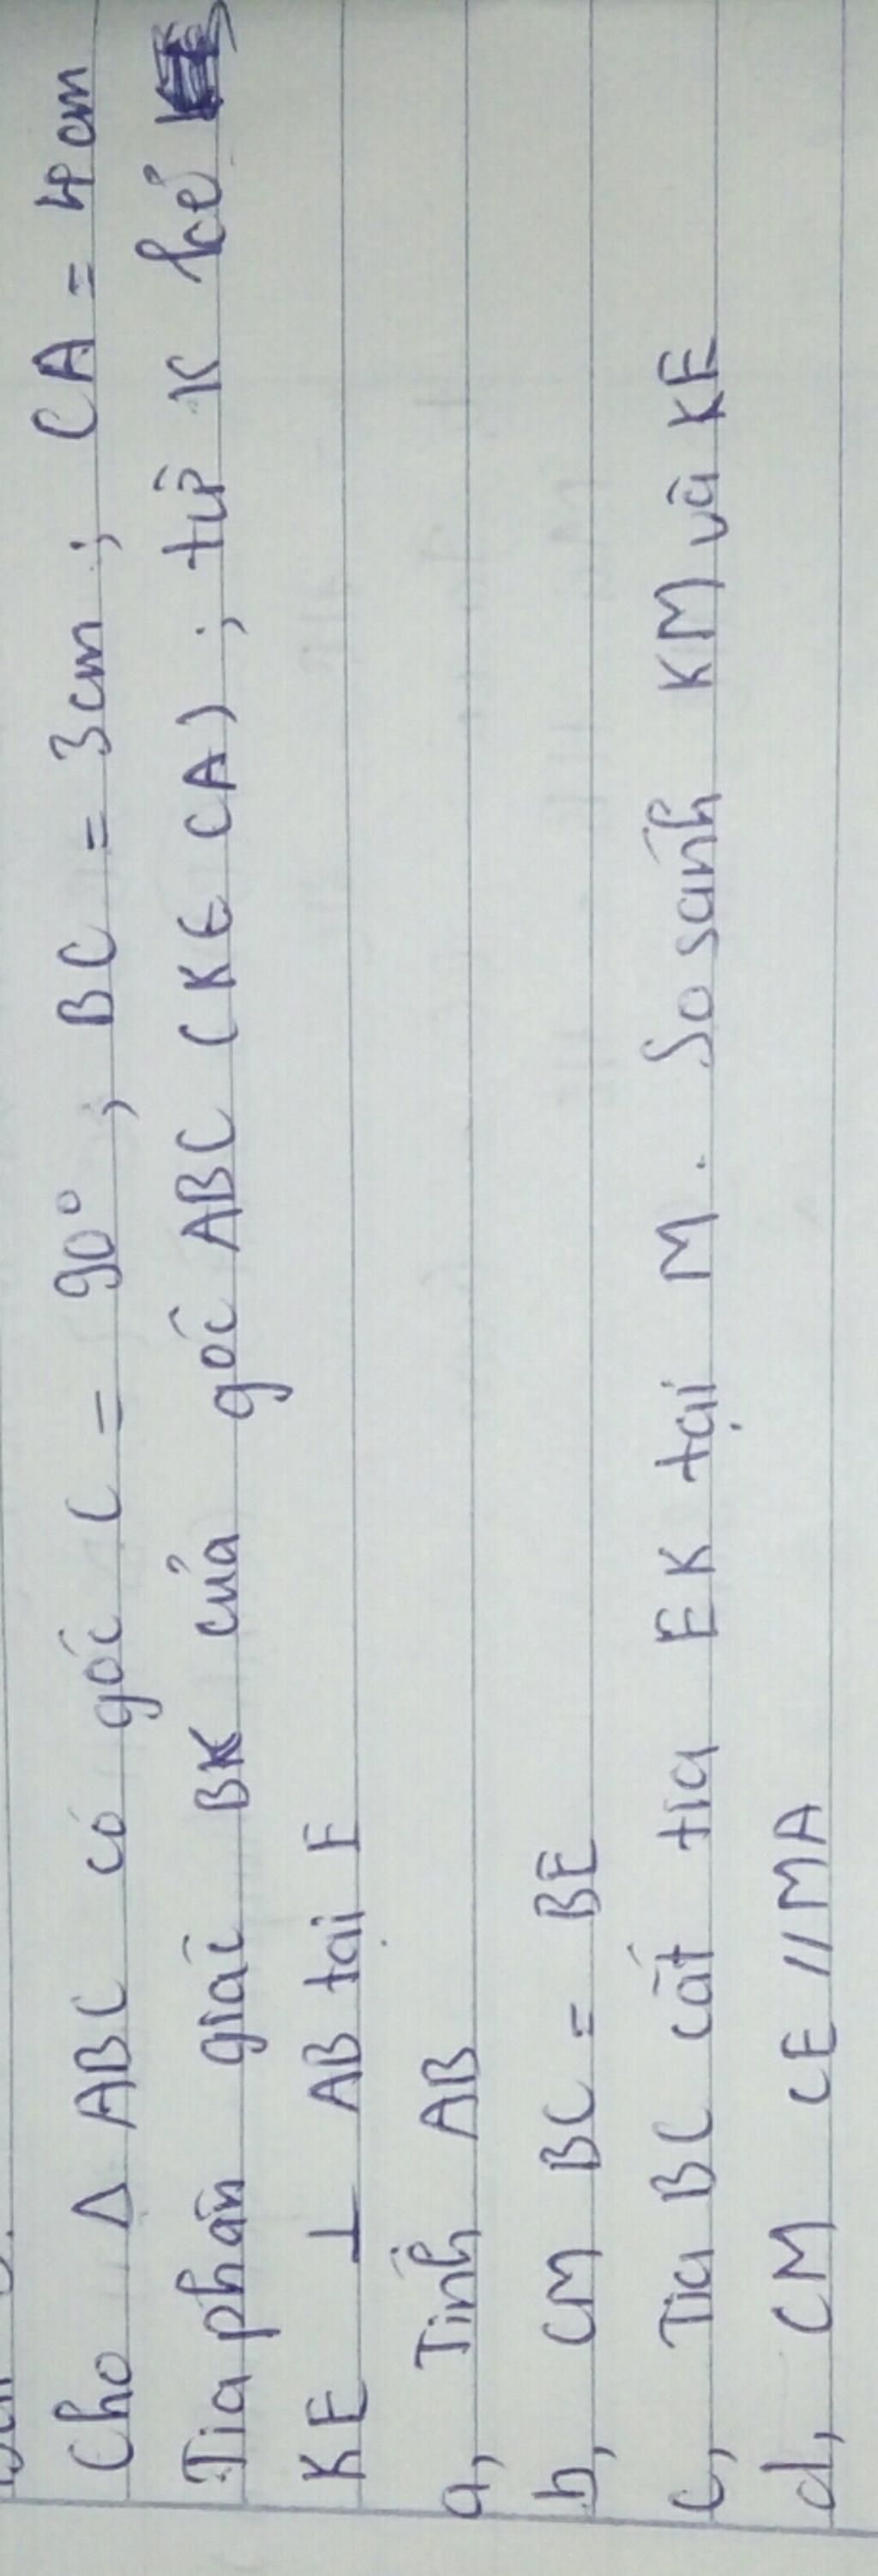 Cho Δ ABC có góc C = 90°, BC = 3cm; CA = 4cm
Tia phân giác BK của góc ABC (K∈ CA); từ K kẻ
KE ⊥ AB tại E
a, Tính AB
b, CM BC = BE
c, Tia BC cắt tia EK tại M. So sánh KM và KE
d, CM CE // MA